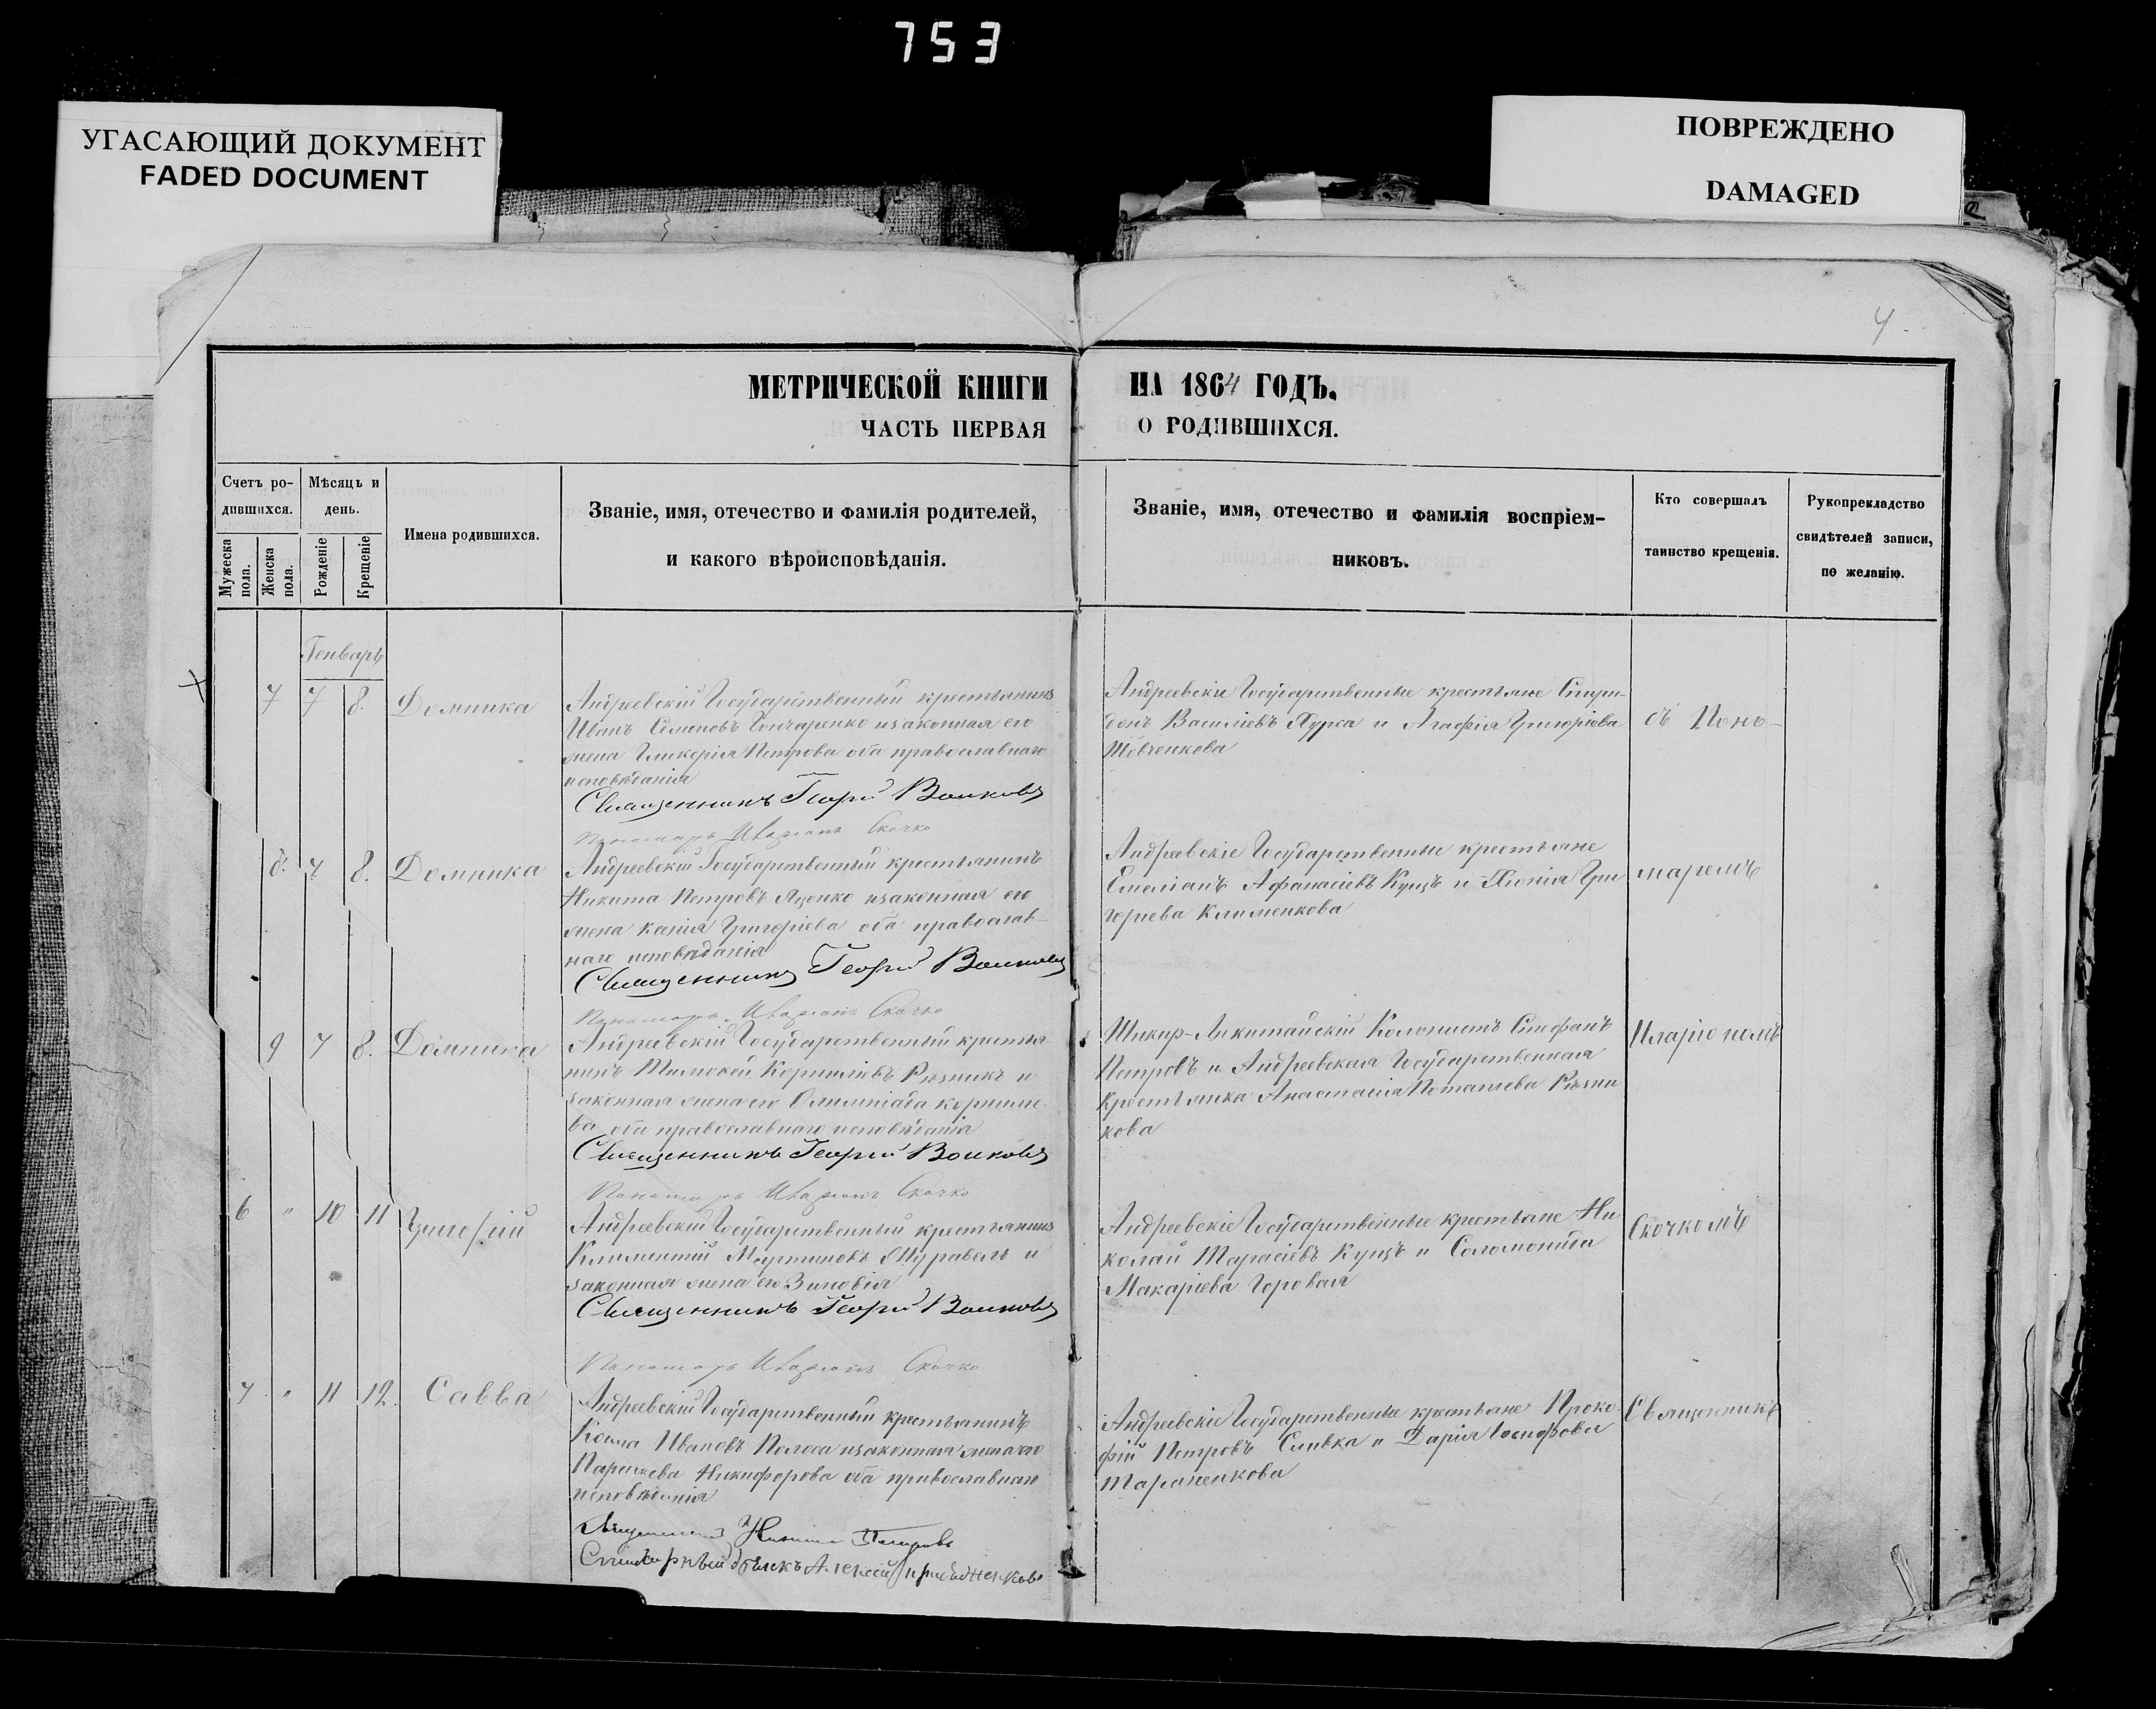 753
УГАСАЮЩИЙ ДОКУМЕНТ
FADED DOCUMENT
ПОВРЕЖДЕНО
DAMAGED
4
МЕТРИЧЕСКОЙ КНИГИ НА 1864 ГОДЪ.
ЧАСТЬ ПЕРВАЯ О РОДИВШИХСЯ.
Счетъ ро-
дившихся.
Мужеска пола.
Женска пола.
Мѣсяцъ и
день.
Рожденіе
Крещеніе
Имена родившихся.
Званіе, имя, отечество и фамилія родителей,
и какого вѣроисповѣданія.
Званіе, имя, отечество и фамилія воспріем-
никовъ.
Кто совершалъ
таинство крещенія.
Рукоприкладство
свидѣтелей записи,
по желанію.
Генварь
7 7 8. Домника
Андреевскій Государственный крестьянинъ
Иванъ Семеновъ Гончаренко изаконная его
жена Гликерія Петрова оба православнаго
исповѣданія
Священникъ Георгій
Пономарь Иларіонъ Скочко
Андреевскіе Государственные крестьяне Спири-
донъ Василіевъ и Агафія Григоріева
Шевченкова
съ Поно-
8. 7 8. Домника
Андреевскій Государственный крестьянинъ
Никита Петровъ Яценко изаконная его
жена Ксенія Григоріева оба православ-
наго исповѣданія
Священникъ Георгій
Пономарь Иларіонъ Скочко
Андреевскіе Государственные крестьяне
Емеліанъ Афанасіевъ Куцъ и Гри
горіева Клименкова
маремъ
9 7 8. Домника
Андреевскій Государственный крестья-
нинъ Тимофей Корниліевъ Рѣзникъ и
законная жена его Олимпіада Корниліе-
ва оба православнаго исповѣданія
Священникъ Георгій
Пономарь Иларіонъ Скочко
Колонистъ Стефанъ
Петровъ и Андреевская Государственная
Крестьянка Анастасія Потапіева Рѣзни
кова
Иларіономъ
6 " 10 11 Григорій
Андреевскій Государственный крестьянинъ
Климентій Мартиновъ Журавель и
законная жена его Зиновія
Священникъ Георгій
Пономарь Иларіонъ Скочко
Андреевскіе Государственные крестьяне Ни
колай Тарасіевъ Куцъ и Соломонида
Макаріева Горовая
Скочкомъ
7 " 11 12. Савва
Андреевскій Государственный крестьянинъ
Косма Ивановъ Полоса изаконная жена его
Параскева Никифорова оба православнаго
исповѣданія
Священникъ Никита Петровъ
Алексій
Андреевскіе Государственные крестьяне Проко
фій Петровъ Сливка и Дарія Іосифова
Тараненкова
Священникъ